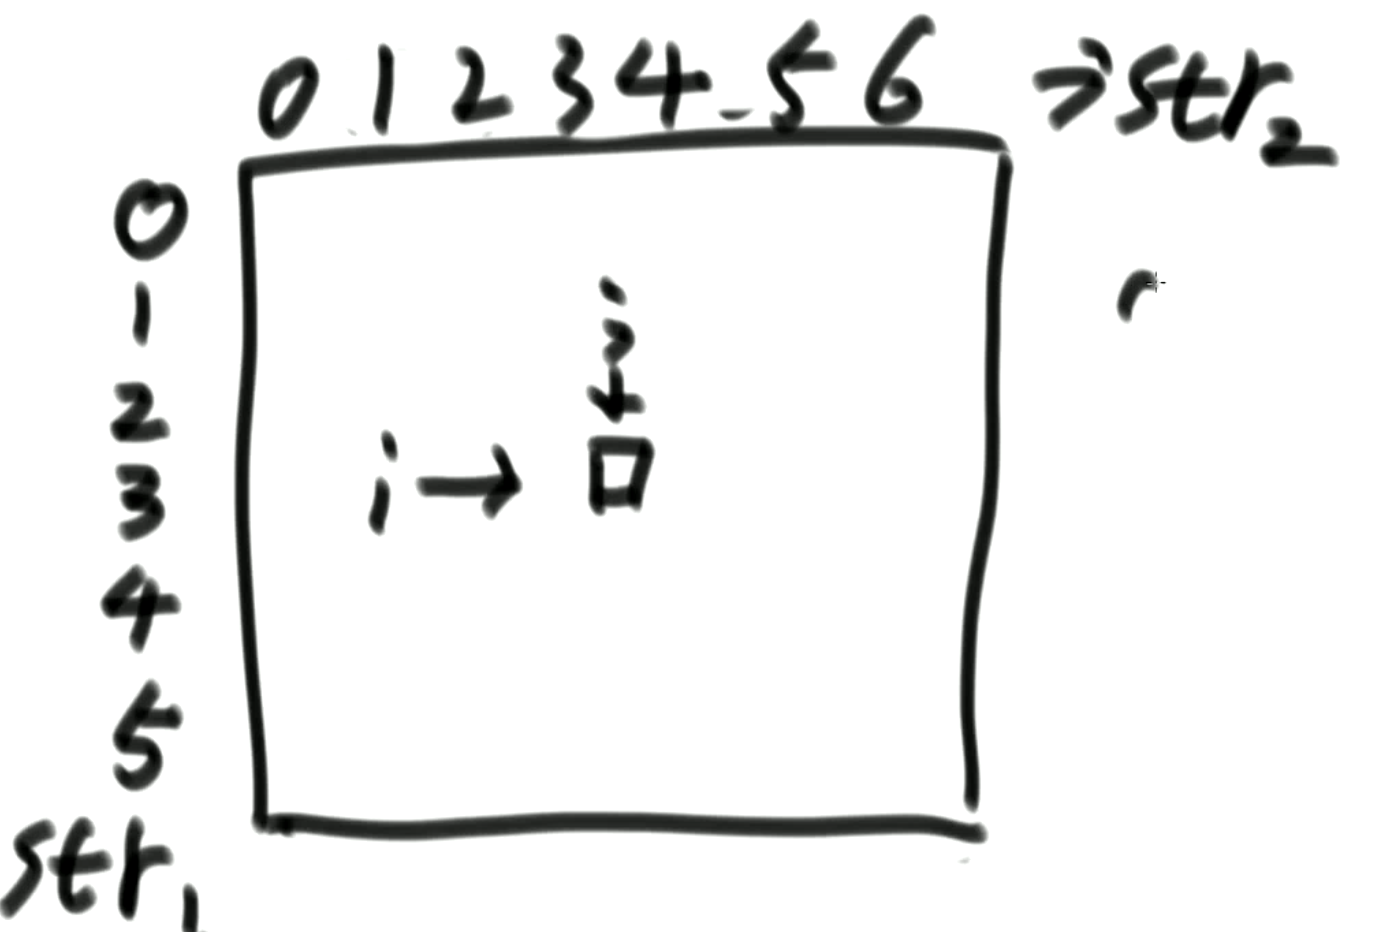 0 1 2 3 4 5 6 → str2
0
1
j
2
i →
3
4
5
str1